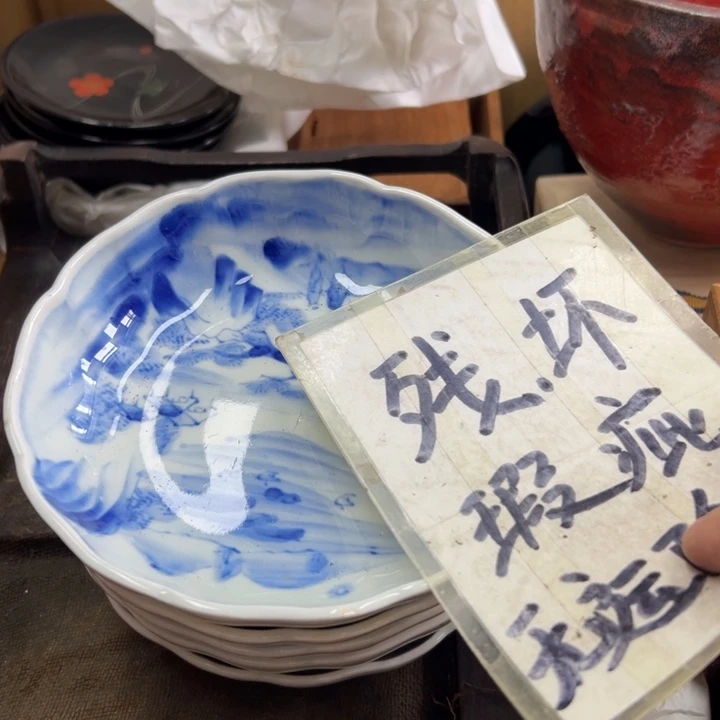 残.坏
瑕疵